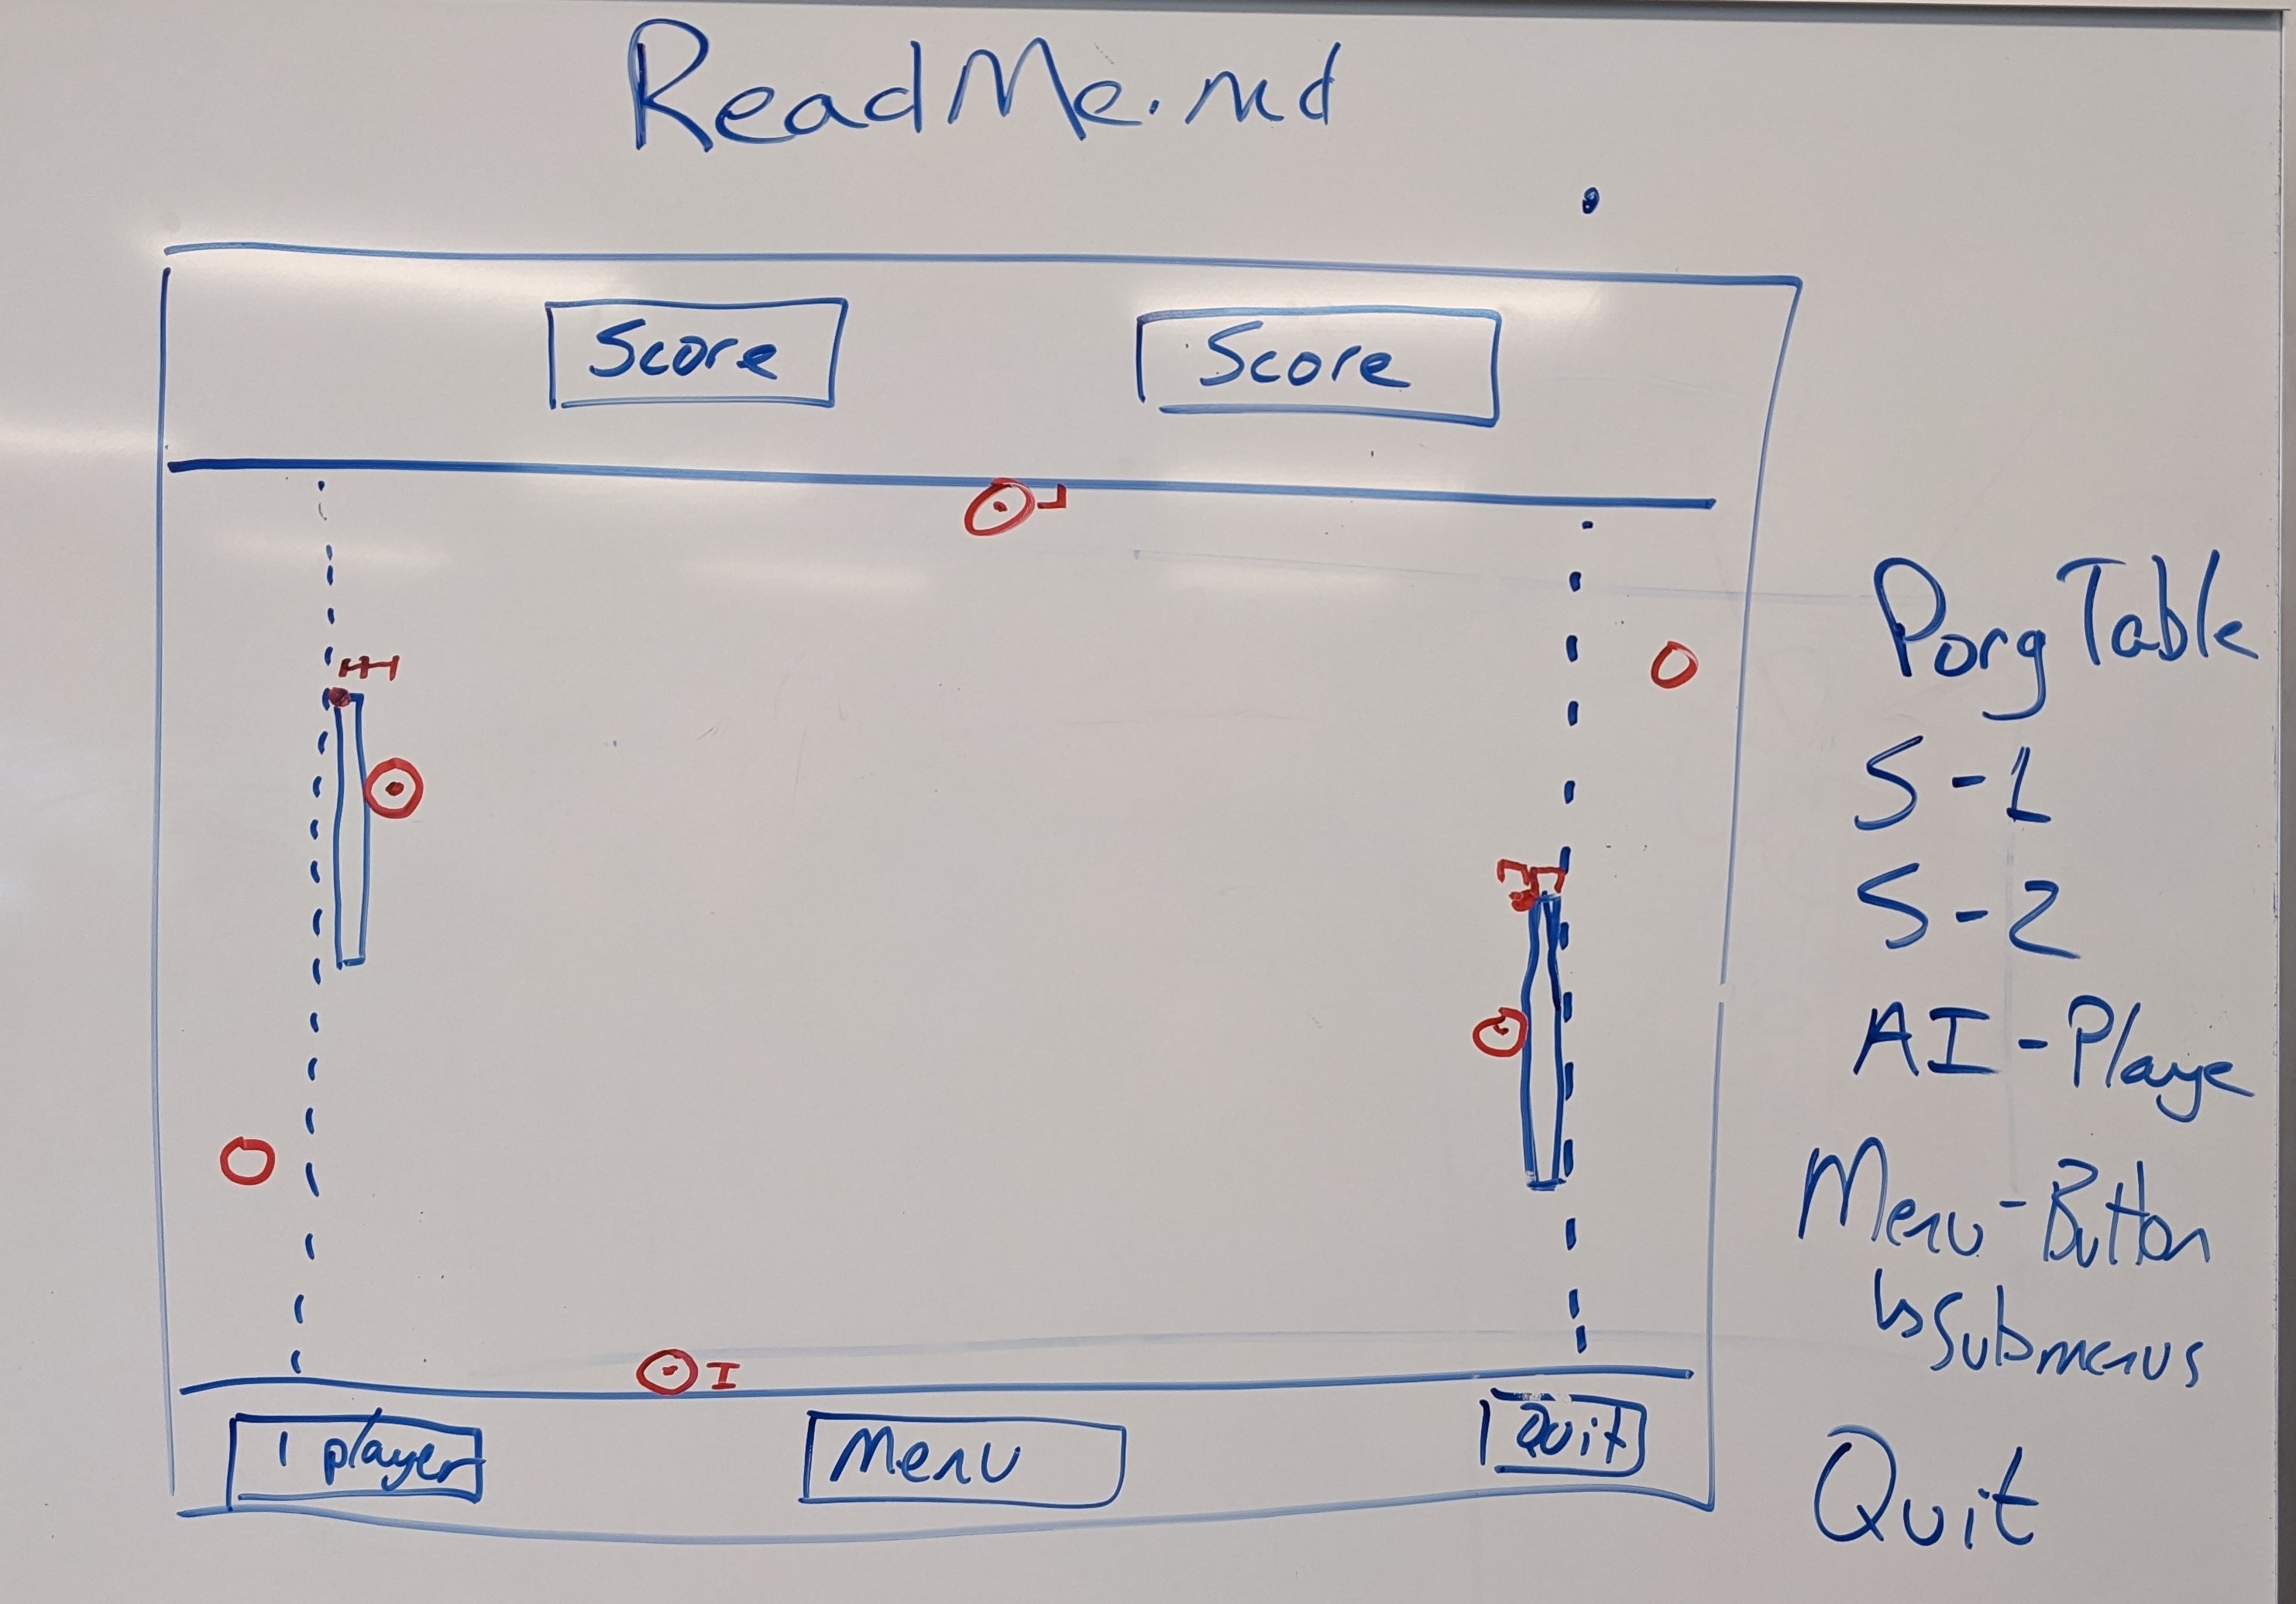 ReadMe.md
Score Score
1 player Menu Quit
Porg Table
S-1
S-2
AI-Playe
Menu-Button
↳Submenus
Quit